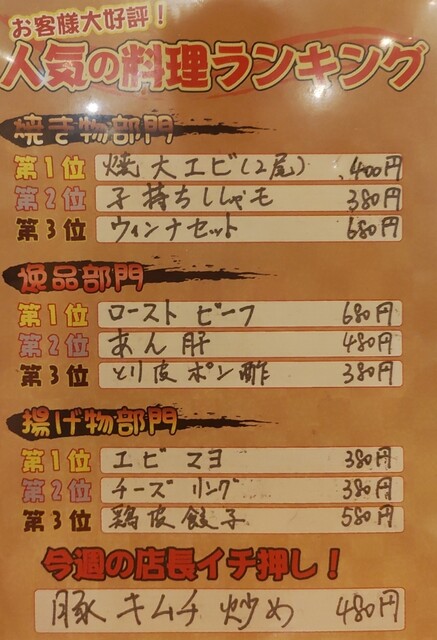 お客様大好評！
人気の料理ランキング
焼き物部門
第1位 焼大エビ(2尾) 400円
第2位 子持ちししゃも 380円
第3位 ウィンナセット 680円
逸品部門
第1位 ローストビーフ 680円
第2位 あん肝 480円
第3位 とり皮ポン酢 380円
揚げ物部門
第1位 エビマヨ 380円
第2位 チーズリング 380円
第3位 鶏皮餃子 580円
今週の店長イチ押し！
豚キムチ炒め 480円